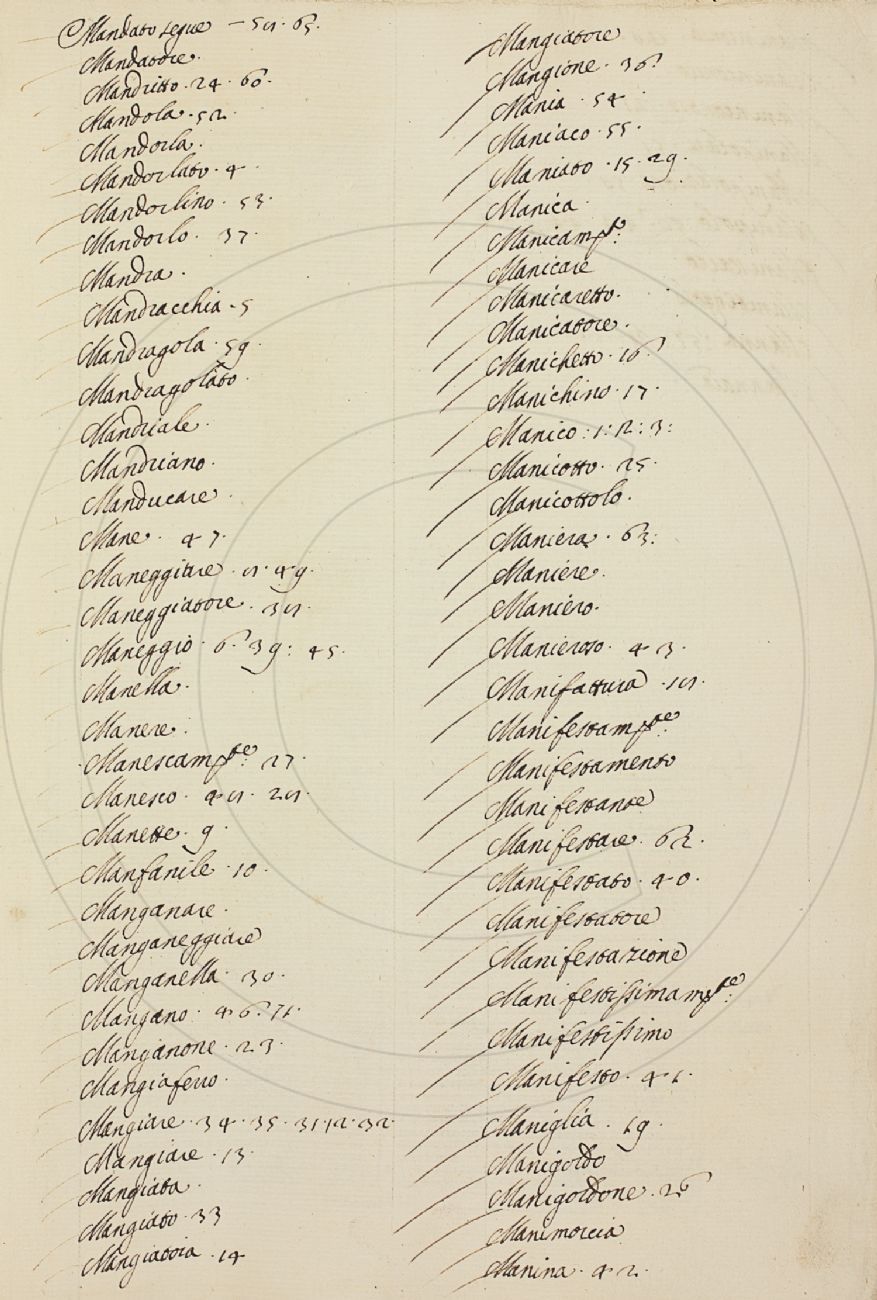 Mandato segue — 51. 65.
Mandatore.
Mandritto. 24. 60.
Mandola. 52.
Mandorla.
Mandorlato. 4.
Mandorlino. 53.
Mandorlo. 37.
Mandra.
Mandracchia. 5
Mandragola. 59.
Mandragolato.
Mandriale.
Mandriano.
Manducare.
Mane. 47.
Maneggiare. 49.
Maneggiatore.
Maneggio. 6. 39: 45.
Manella.
Manere.
Manescamte: 27.
Manesco.
Manette. 9.
Manfanile. 10.
Manganare.
Manganeggiare
Manganella. 30.
Mangano. 46. 71.
Manganone. 23.
Mangiaferro.
Mangiare. 34. 35. 31. 12. 32.
Mangiare. 13.
Mangiata.
Mangiato. 33
Mangiatoia. 14
Mangiatore
Mangione. 36.
Mania. 54
Maniaco. 55.
Maniato. 15. 29.
Manica.
Manicamto:
Manicare
Manicaretto.
Manicatore.
Manichetto. 16.
Manichino. 17.
Manico: 1: 2: 3:
Manicotto. 25.
Manicottolo.
Maniera. 63:
Maniere.
Maniero.
Manieroso. 43.
Manifattura.
Manifestamte:
Manifestamento
Manifestante
Manifestare. 62.
Manifestato. 40.
Manifestatore
Manifestazione
Manifestissimamte:
Manifestissimo
Manifesto. 41.
Maniglia. 19.
Manigoldo
Manigoldone. 26
Manimorcia
Manina. 42.